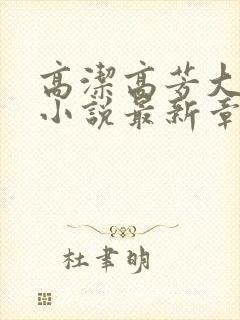 高潔高芳大
小說最新章
杜聿明